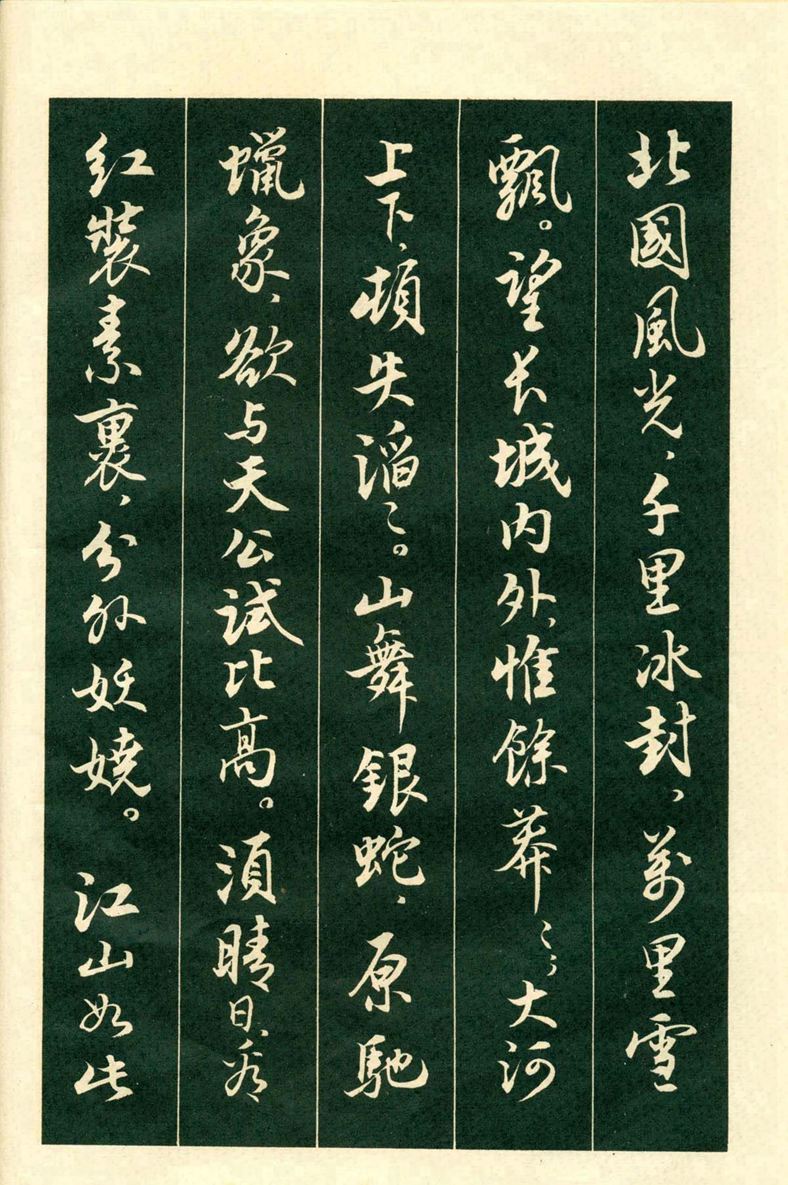 北國風光、千里冰封、萬里雪
飄。望长城内外、惟餘莽〻、大河
上下、頓失滔〻。山舞銀蛇、原馳
蠟象、欲与天公試比高。須晴日、看
红裝素裹、分外妖嬈。江山如此